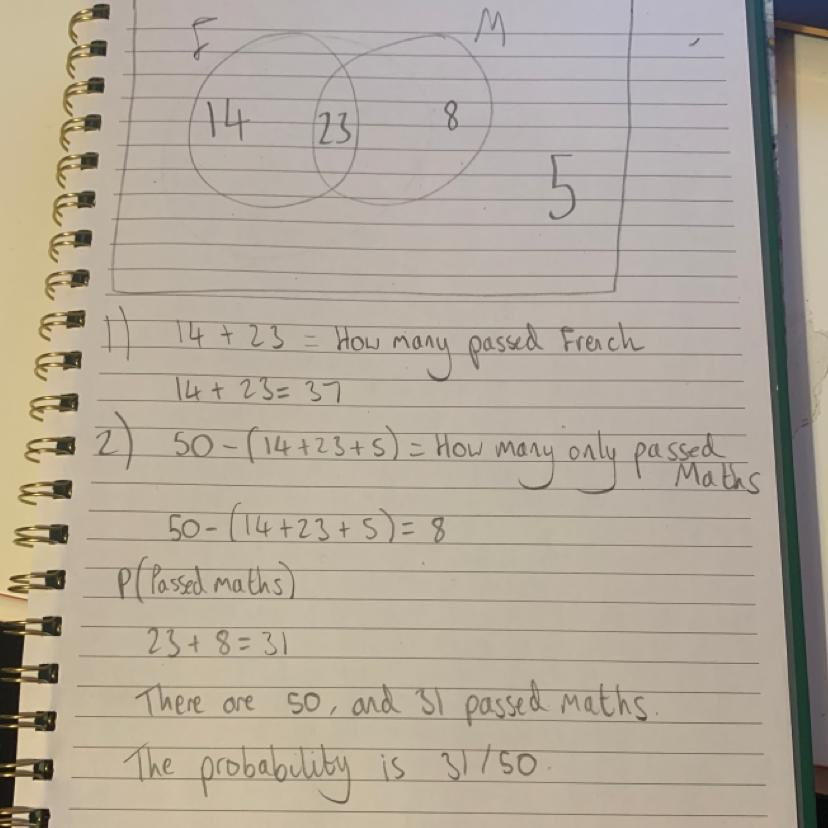 F M
14 23 8
5
1) 14 + 23 = How many passed French
14 + 23 = 37
2) 50 - (14+23+5) = How many only passed
Maths
50 - (14+23+5) = 8
P(Passed maths)
23 + 8 = 31
There are 50, and 31 passed maths.
The probability is 31/50.